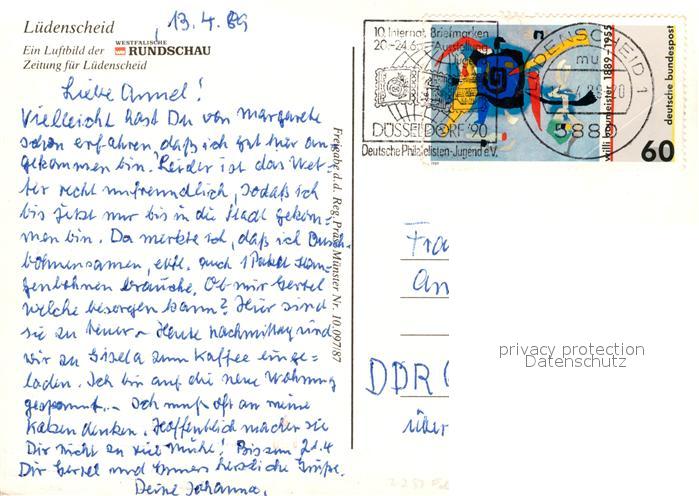 Lüdenscheid
13.4.89
Ein Luftbild der WESTFÄLISCHE RUNDSCHAU
Zeitung für Lüdenscheid
Liebe Annel!
Vielleicht hast Du von Margarete
schon erfahren, daß ich gut hier an
gekommen bin. Leider ist das Wet-
ter recht unfreundlich, sodaß ich
bis jetzt nur bis in die Stadt gekom=
men bin. Da merkte ich, daß ich Busch
bohnensamen, evtl. auch 1 Paket Stan
genbohnen brauche. Ob mir Gertel
welche besorgen kann? Hier sind
sie zu teuer - Heute nachmittag sind
wir zu Gisela zum Kaffee einge=
laden. Ich bin auf die neue Wohnung
gespannt.. Ich muß oft an meine
Katzen denken. Hoffentlich machen sie
Dir nicht zu viel Mühe! Bis zum 21.4
Dir Gertel und herzliche Grüße.
Deine Johanna.
Freigabe d.d. Reg. Präs. Münster Nr. 10.097/87
10. Internat. Briefmarken
20.-24.6. Ausstellung
DÜSSELDORF '90
Deutsche Philatelisten-Jugend e.V.
LÜDENSCHEID 1
mu
5880
willi baumeister 1889-1955
deutsche bundespost
60
Fra
An
DDR
über
privacy protection
Datenschutz